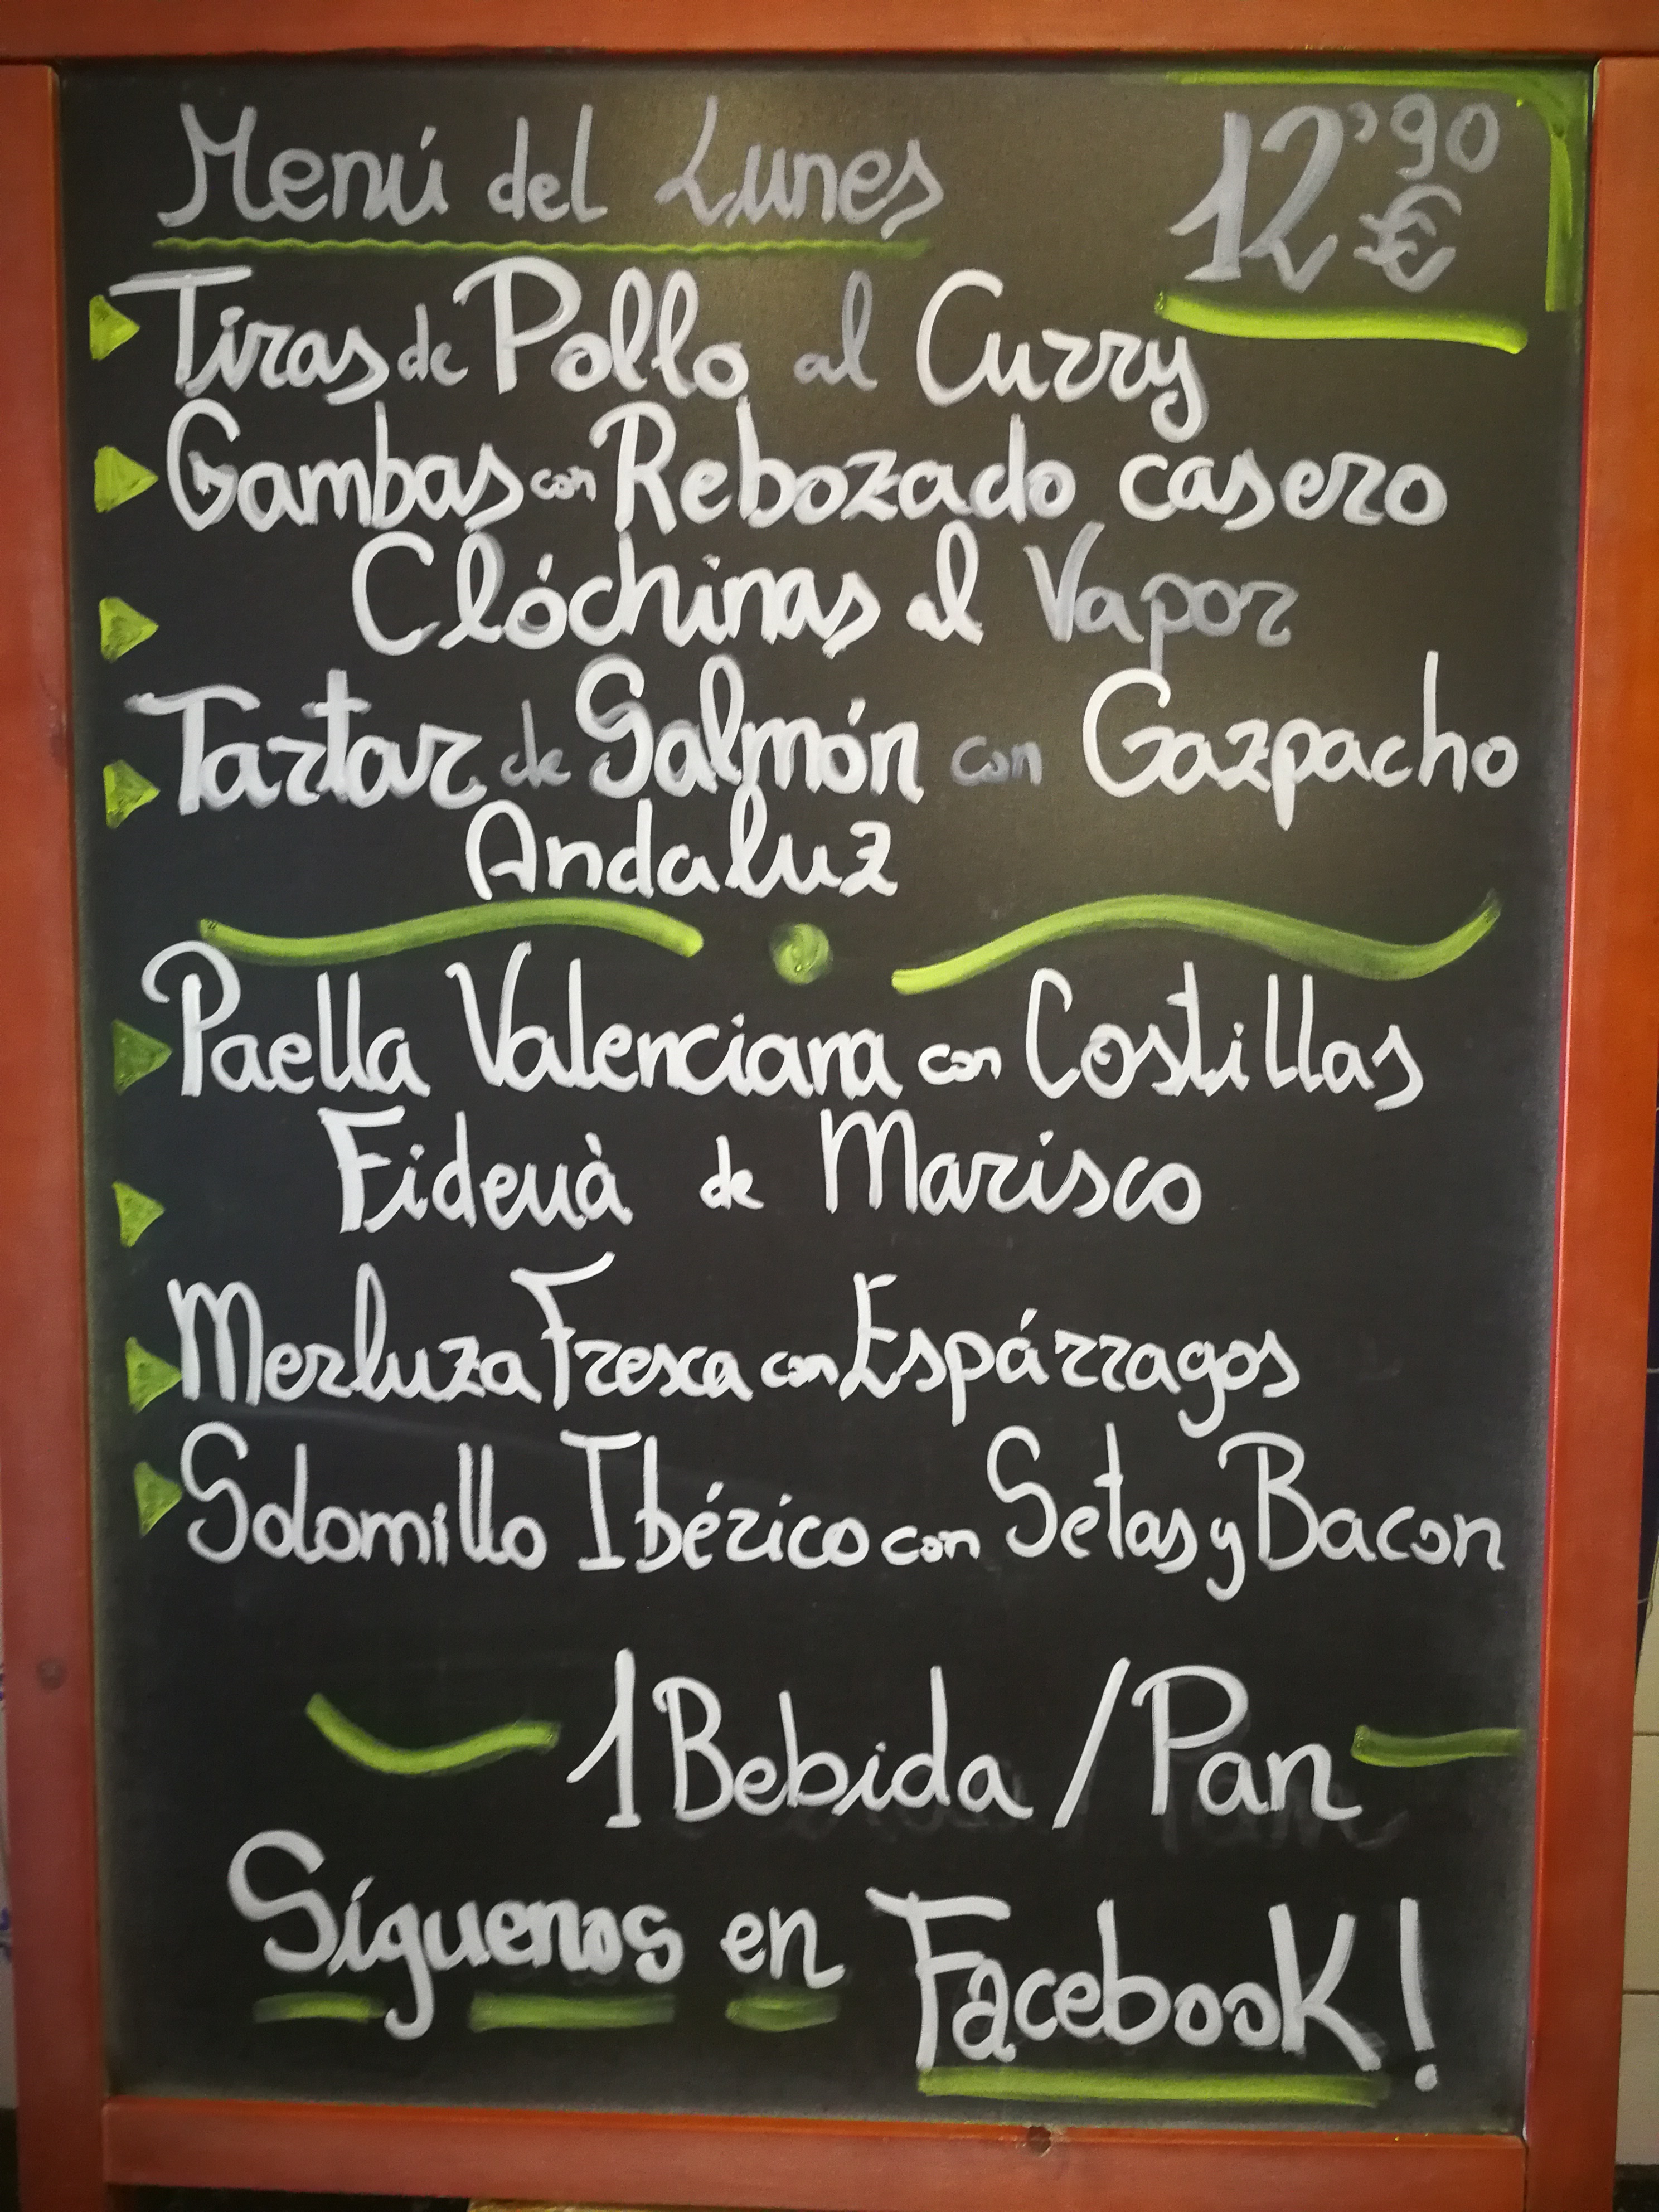 Menú del Lunes 12'90 €
Tiras de Pollo al Curry
Gambas con Rebozado casero
Clóchinas al Vapor
Tartar de Salmón con Gazpacho
Andaluz
Paella Valenciana con Costillas
Fideuà de Marisco
Merluza Fresca con Espárragos
Solomillo Ibérico con Setas y Bacon
1 Bebida / Pan
Síguenos en Facebook!